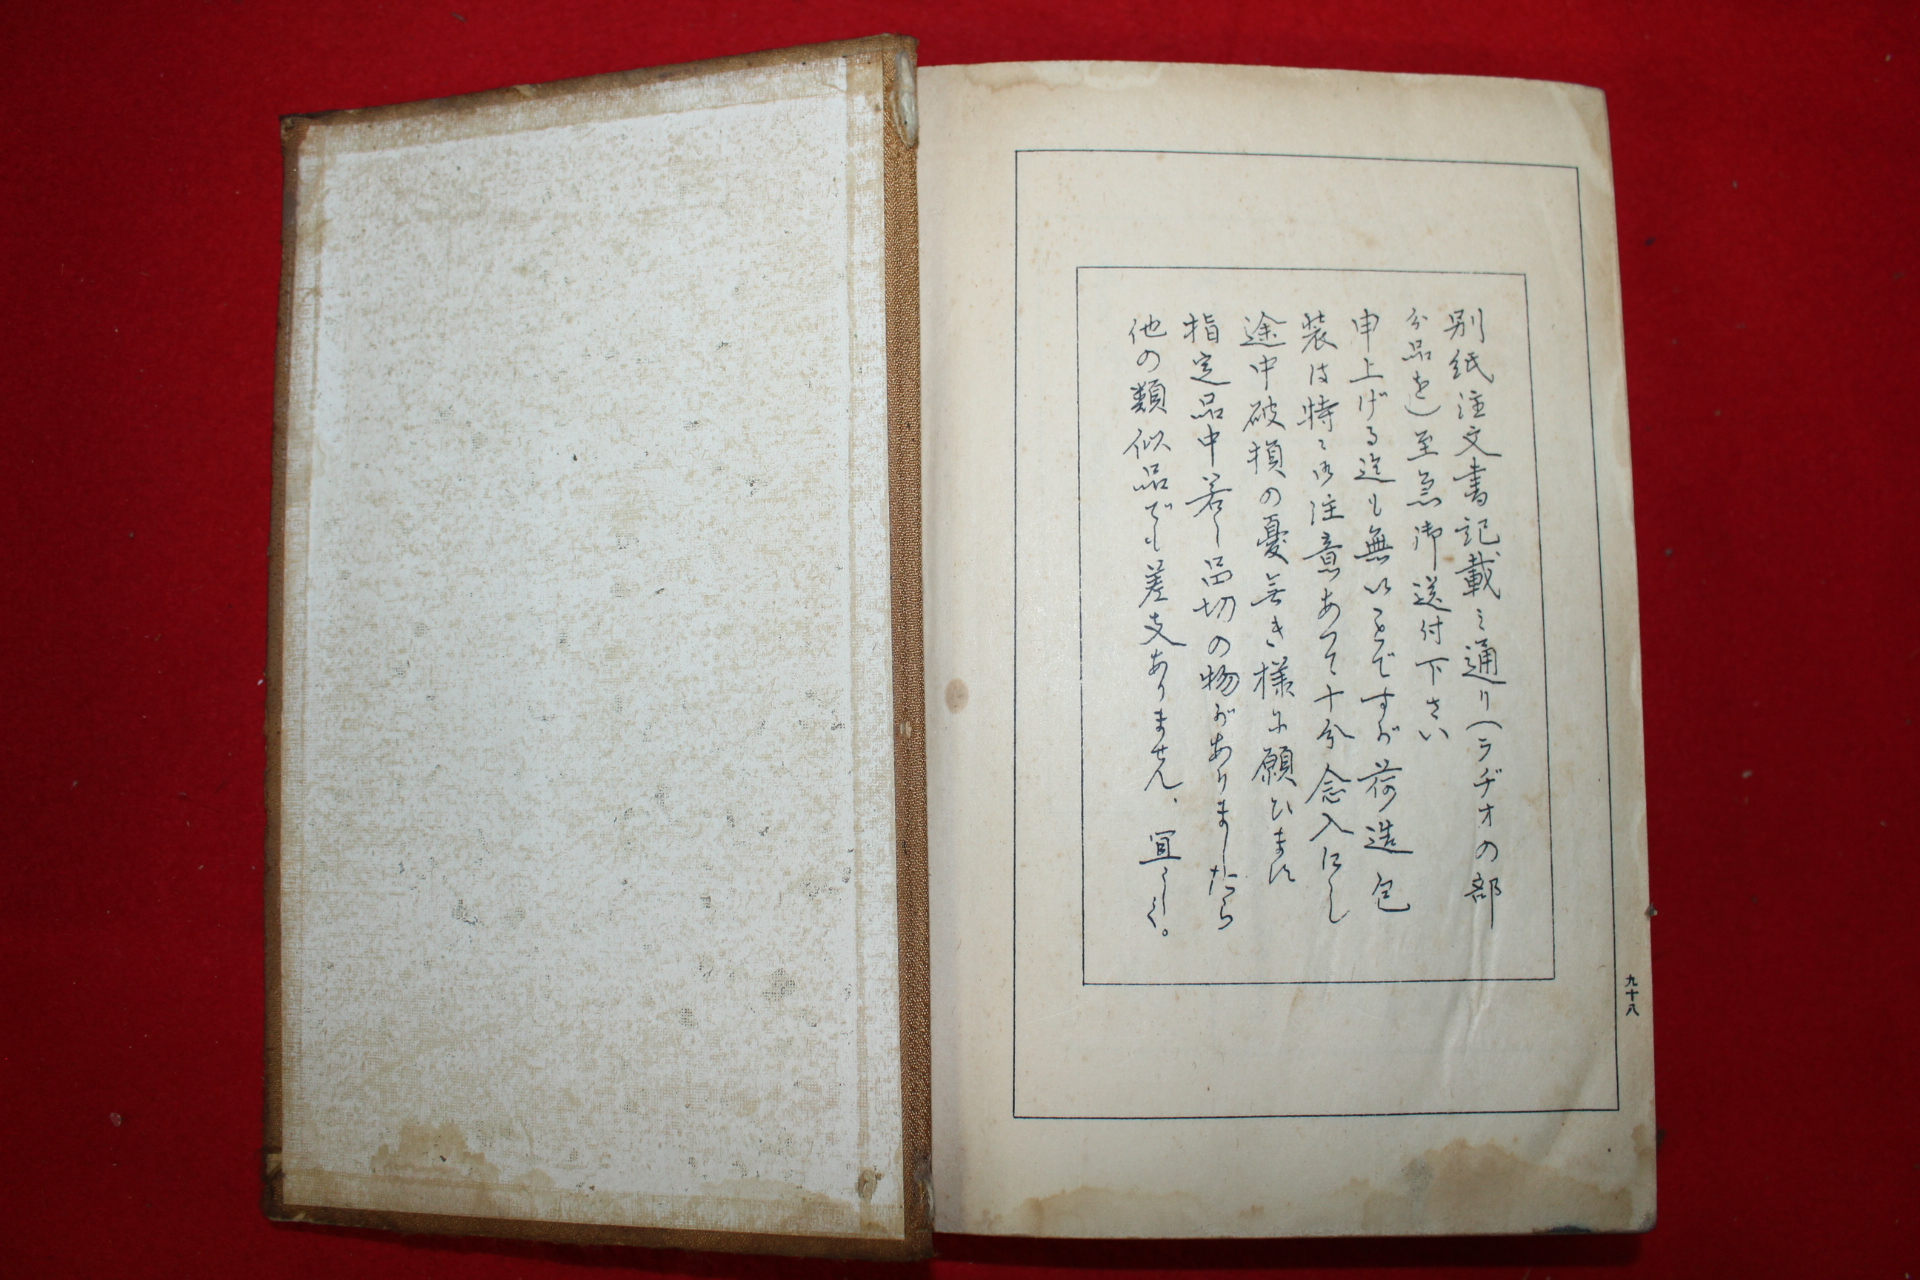 別紙注文書記載ミ通リ(ラヂオの部
分品を)至急御送付下さい
申上げる迄も無いことですが荷造包
装は特ニ御注意あつて十分念入にし
途中破損の憂無き様に願ひます
指定品中若し品切の物がありましたら
他の類似品でも差支ありません、宜しく。
九十八